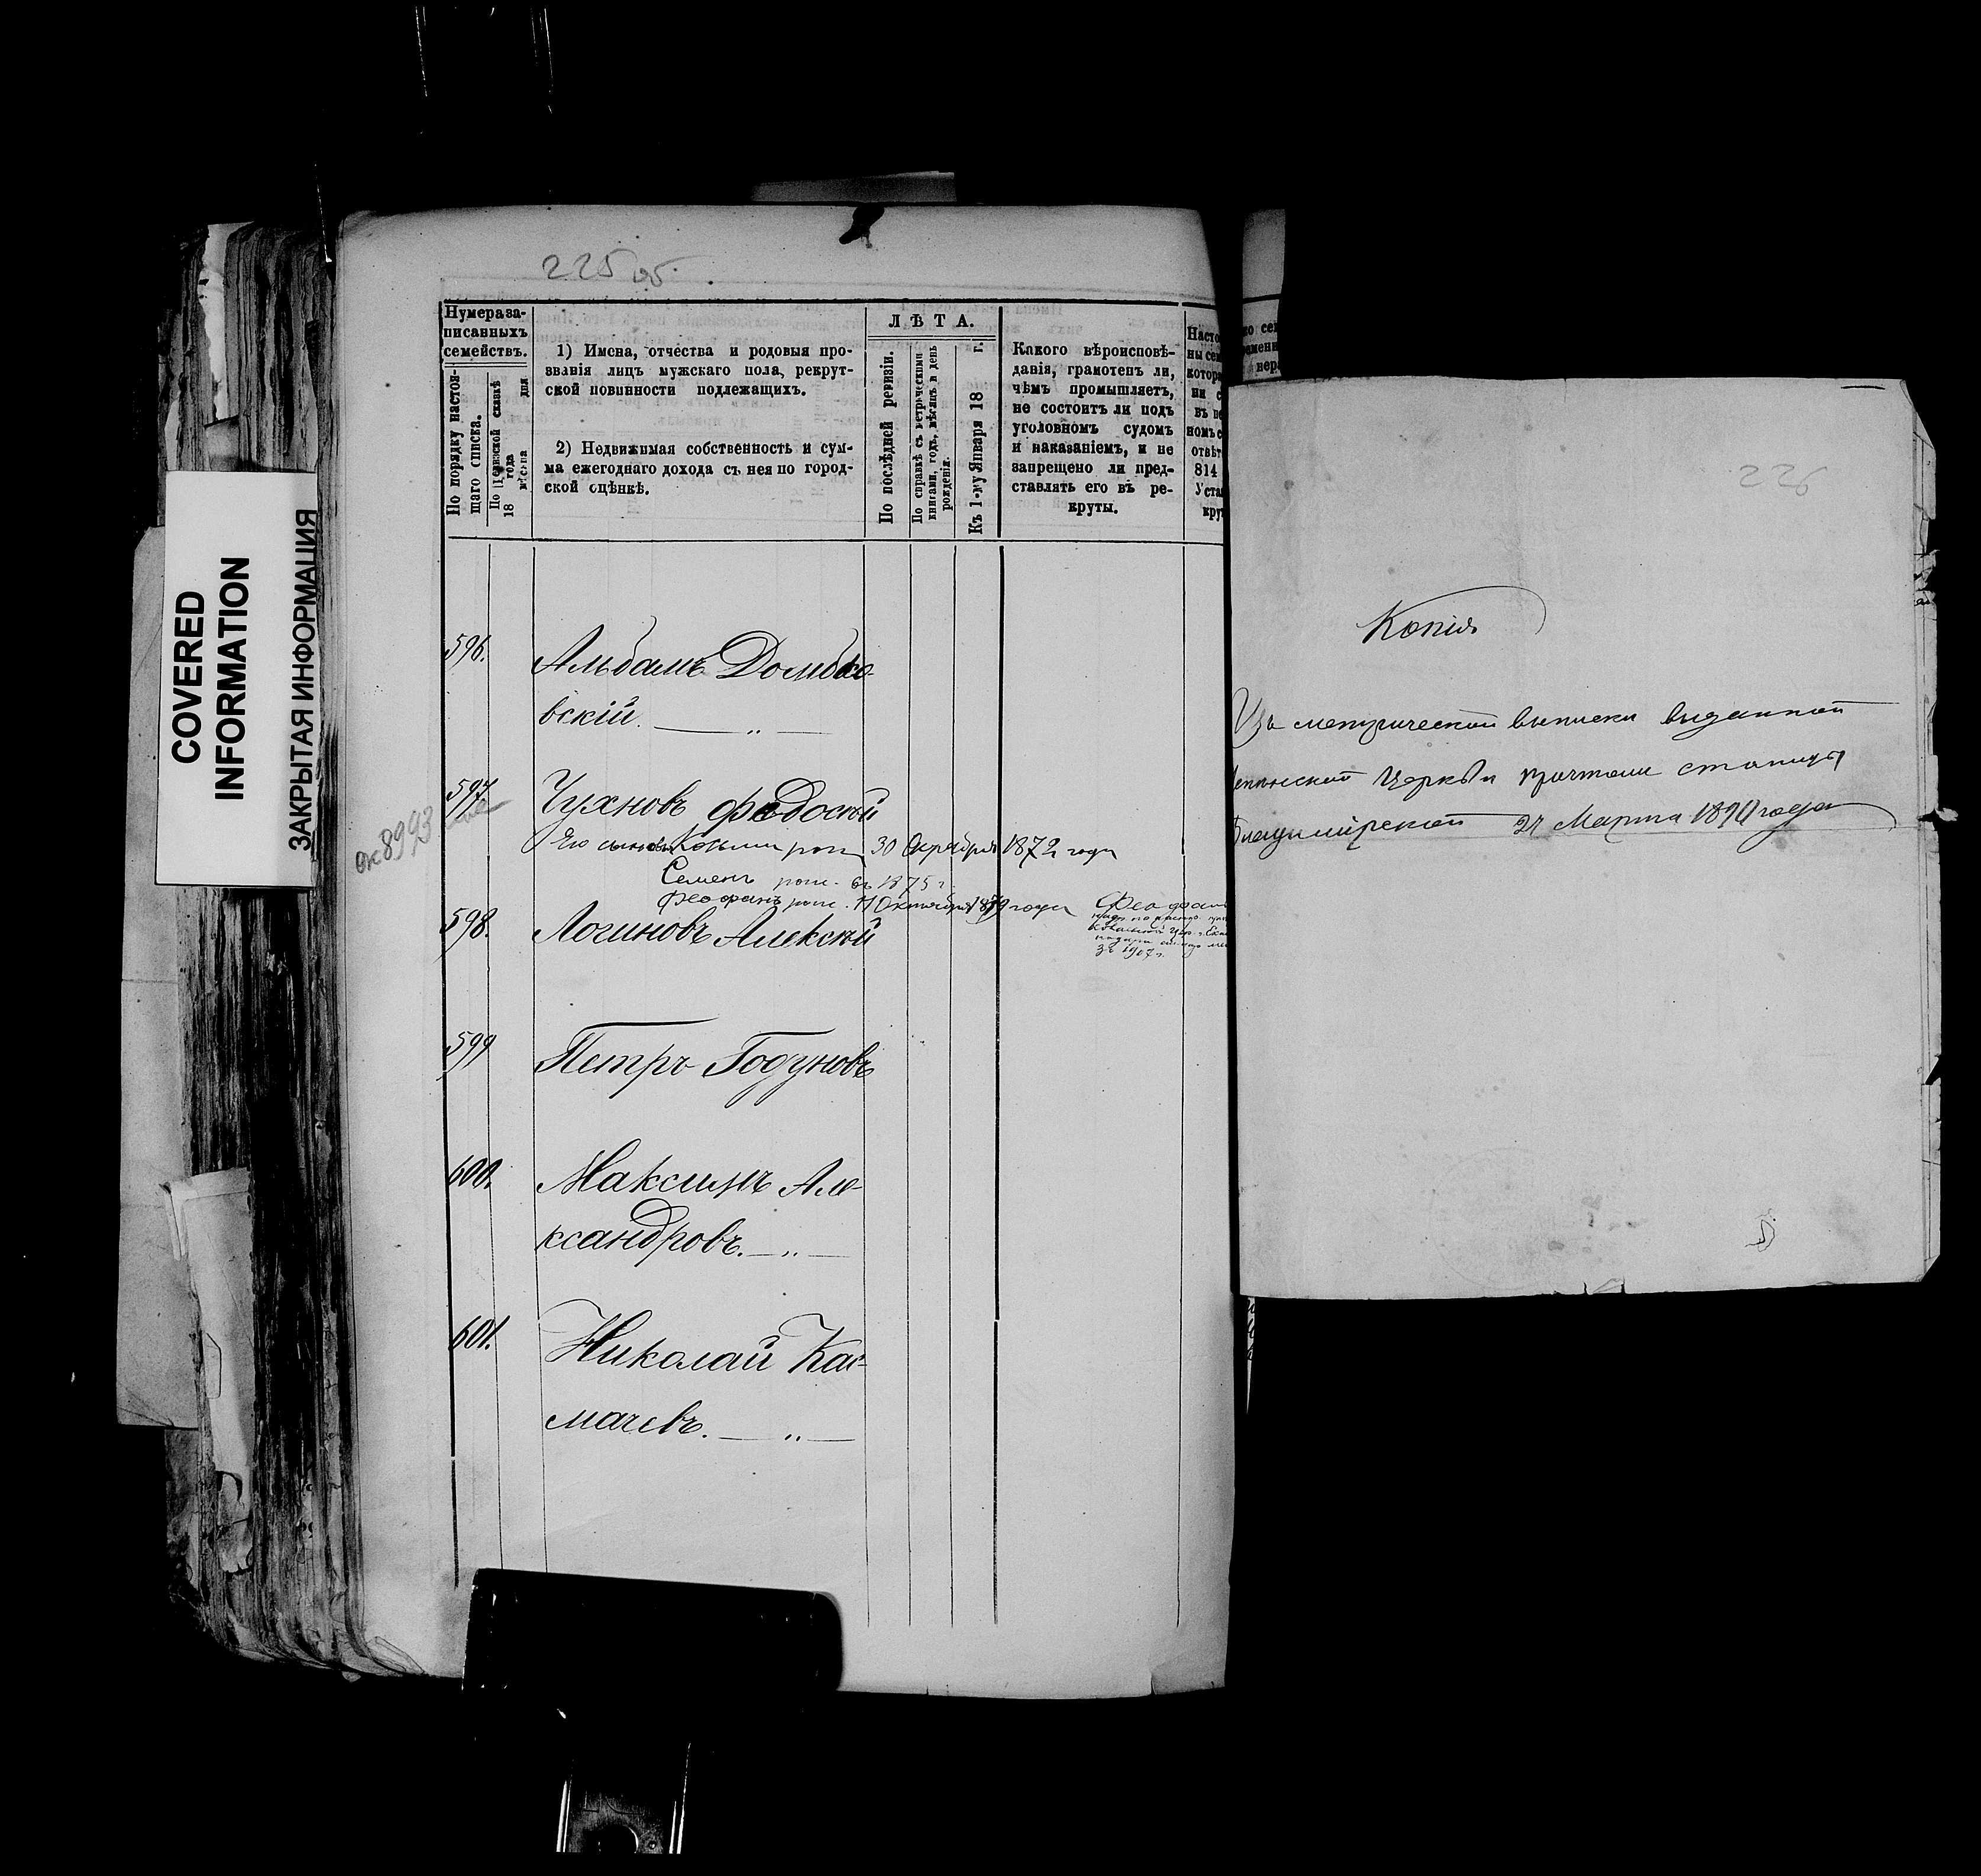 225 об.
COVERED
INFORMATION
ЗАКРЫТАЯ ИНФОРМАЦИЯ
Нумера за-
писанныхъ
семействъ.
По порядку настоя-
щаго списка.
По ревизской сказкѣ
18 года
мѣсяца дня
1) Имена, отчества и родовыя про-
званія лицъ мужскаго пола, рекрут-
ской повинности подлежащихъ.
2) Недвижимая собственность и сум-
ма ежегоднаго дохода съ нея по город-
ской оцѣнкѣ.
ЛѢТА.
По послѣдней ревизіи.
По справкѣ съ метрическими
книгами, годъ, мѣсяцъ и день
рожденія.
Къ 1-му Января 18 г.
Какого вѣроисповѣ-
данія, грамотенъ ли,
чѣмъ промышляетъ,
не состоитъ ли подъ
уголовномъ судомъ
и наказаніемъ, и не
запрещено ли пред-
ставлять его въ ре-
круты.
814
596. Альбамъ Домбко-
вскій. — „ —
597. Чухновъ Федосѣй
Его сыновья Козьма рож. 30 Октября 1872 года
Семенъ рож. въ 1875 г.
Феофанъ рож. 11 Октября 1879 года
за 1907 г.
ок 8993
598. Логиновъ Алексѣй
599 Петръ Годуновъ
600. Максимъ Але-
ксандровъ. — „ —
601. Николай Кас-
мачевъ. — „ —
226
Копія
Изъ метрической выписки выданной
церкви причтомъ станицы
Владимірской 24 Марта 1890 года